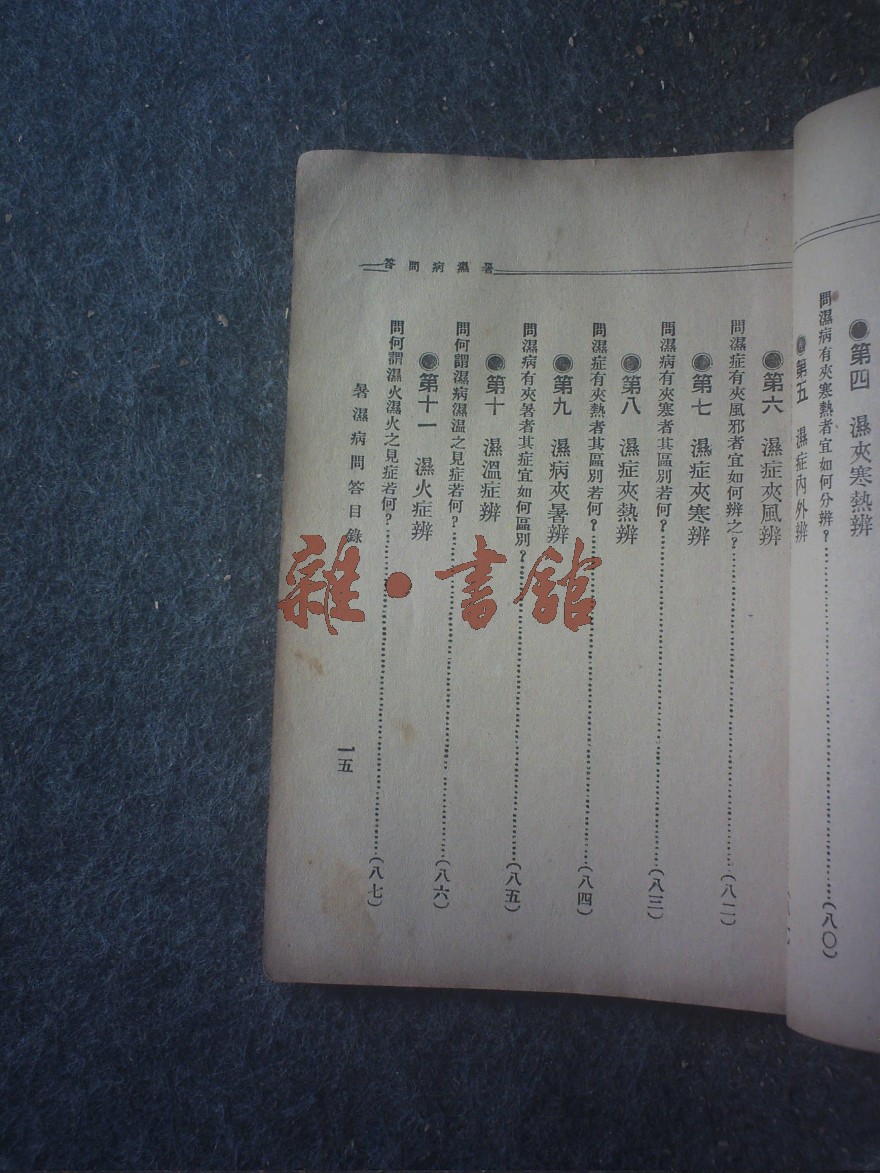 ●第四　濕夾寒熱辨
問濕病有夾寒熱者宜如何分辨？……(八〇)
●第五　濕症內外辨
暑濕病問答
●第六　濕症夾風辨
問濕症有夾風邪者宜如何辨之？……(八二)
●第七　濕症夾寒辨
問濕病有夾寒者其區別若何？……(八三)
●第八　濕症夾熱辨
問濕症有夾熱者其區別若何？……(八四)
●第九　濕病夾暑辨
問濕病有夾暑者其症宜如何區別？……(八五)
●第十　濕溫症辨
問何謂濕病濕溫之見症若何？……(八六)
●第十一　濕火症辨
問何謂濕火濕火之見症若何？……(八七)
暑濕病問答目錄
一五
雜·書館